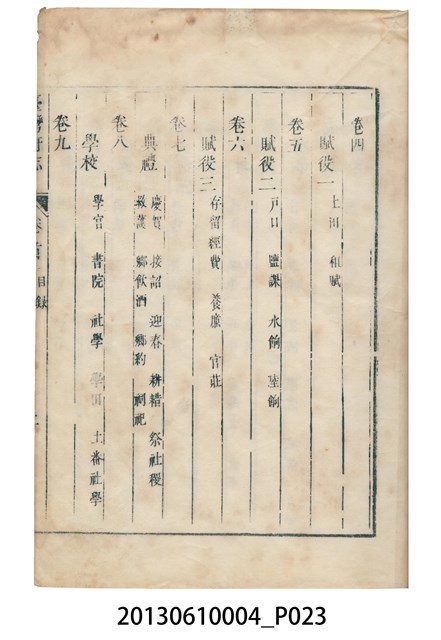 卷四
賦役一 土田 租賦
卷五
賦役二 戶口 鹽課 水餉 陸餉
卷六
賦役三 存留經費 養廉 官莊
卷七
典禮 慶賀 接詔 迎春 耕耤 祭社稷
救護 鄉飲酒 鄉約 祠祀
卷八
學校 學官 書院 社學 學田 土番社學
卷九
臺灣府志 卷首 目錄
20130610004_P023